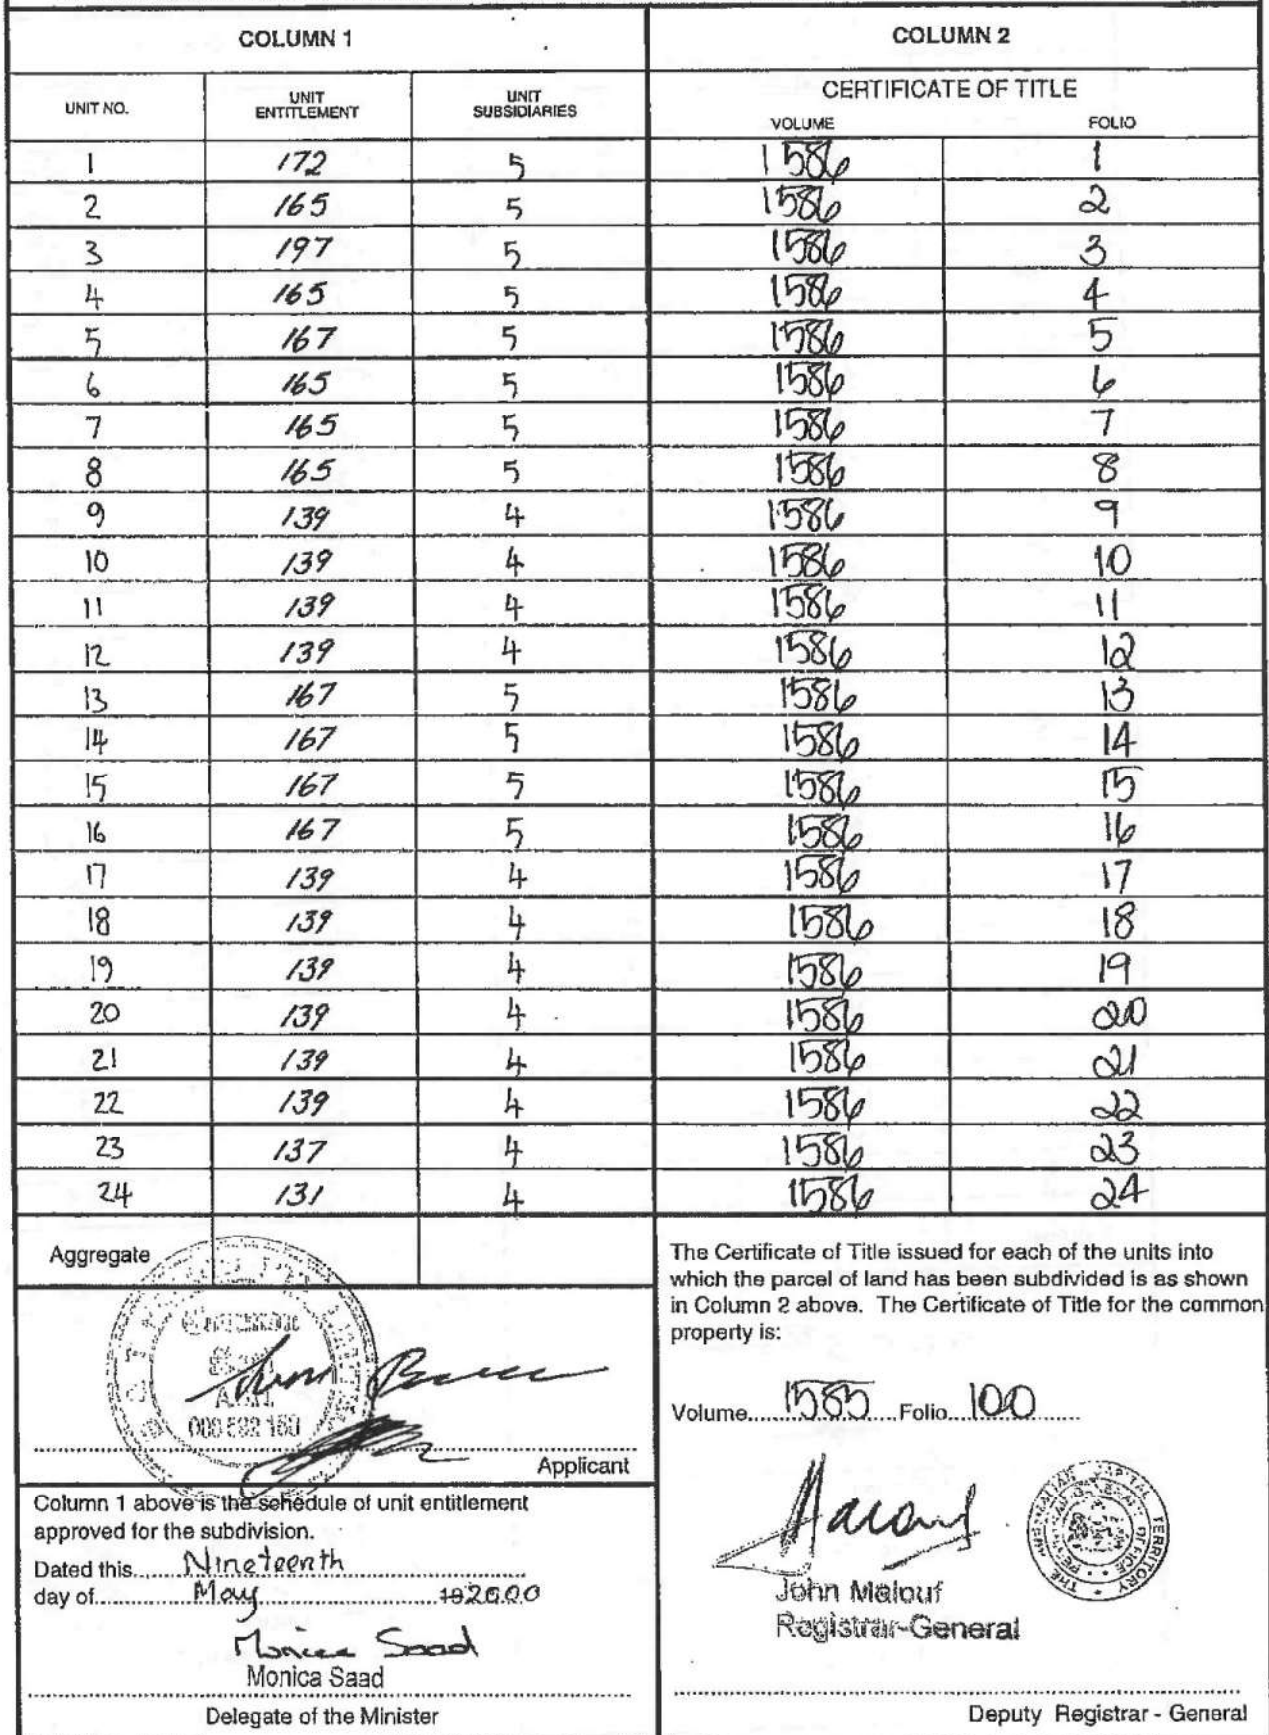 COLUMN 1 COLUMN 2
UNIT NO. UNIT ENTITLEMENT UNIT SUBSIDIARIES CERTIFICATE OF TITLE
VOLUME FOLIO
1 172 5 1586 1
2 165 5 1586 2
3 197 5 1586 3
4 165 5 1586 4
5 167 5 1586 5
6 165 5 1586 6
7 165 5 1586 7
8 165 5 1586 8
9 139 4 1586 9
10 139 4 1586 10
11 139 4 1586 11
12 139 4 1586 12
13 167 5 1586 13
14 167 5 1586 14
15 167 5 1586 15
16 167 5 1586 16
17 139 4 1586 17
18 139 4 1586 18
19 139 4 1586 19
20 139 4 1586 20
21 139 4 1586 21
22 139 4 1586 22
23 137 4 1586 23
24 131 4 1586 24
Aggregate
Applicant
Column 1 above is the schedule of unit entitlement
approved for the subdivision.
Dated this Nineteenth
day of May 192000
Monica Saad
Monica Saad
Delegate of the Minister
The Certificate of Title issued for each of the units into
which the parcel of land has been subdivided is as shown
in Column 2 above. The Certificate of Title for the common
property is:
Volume 1585 Folio 100
John Malouf
Registrar-General
THE AUSTRALIAN CAPITAL TERRITORY
Deputy Registrar - General